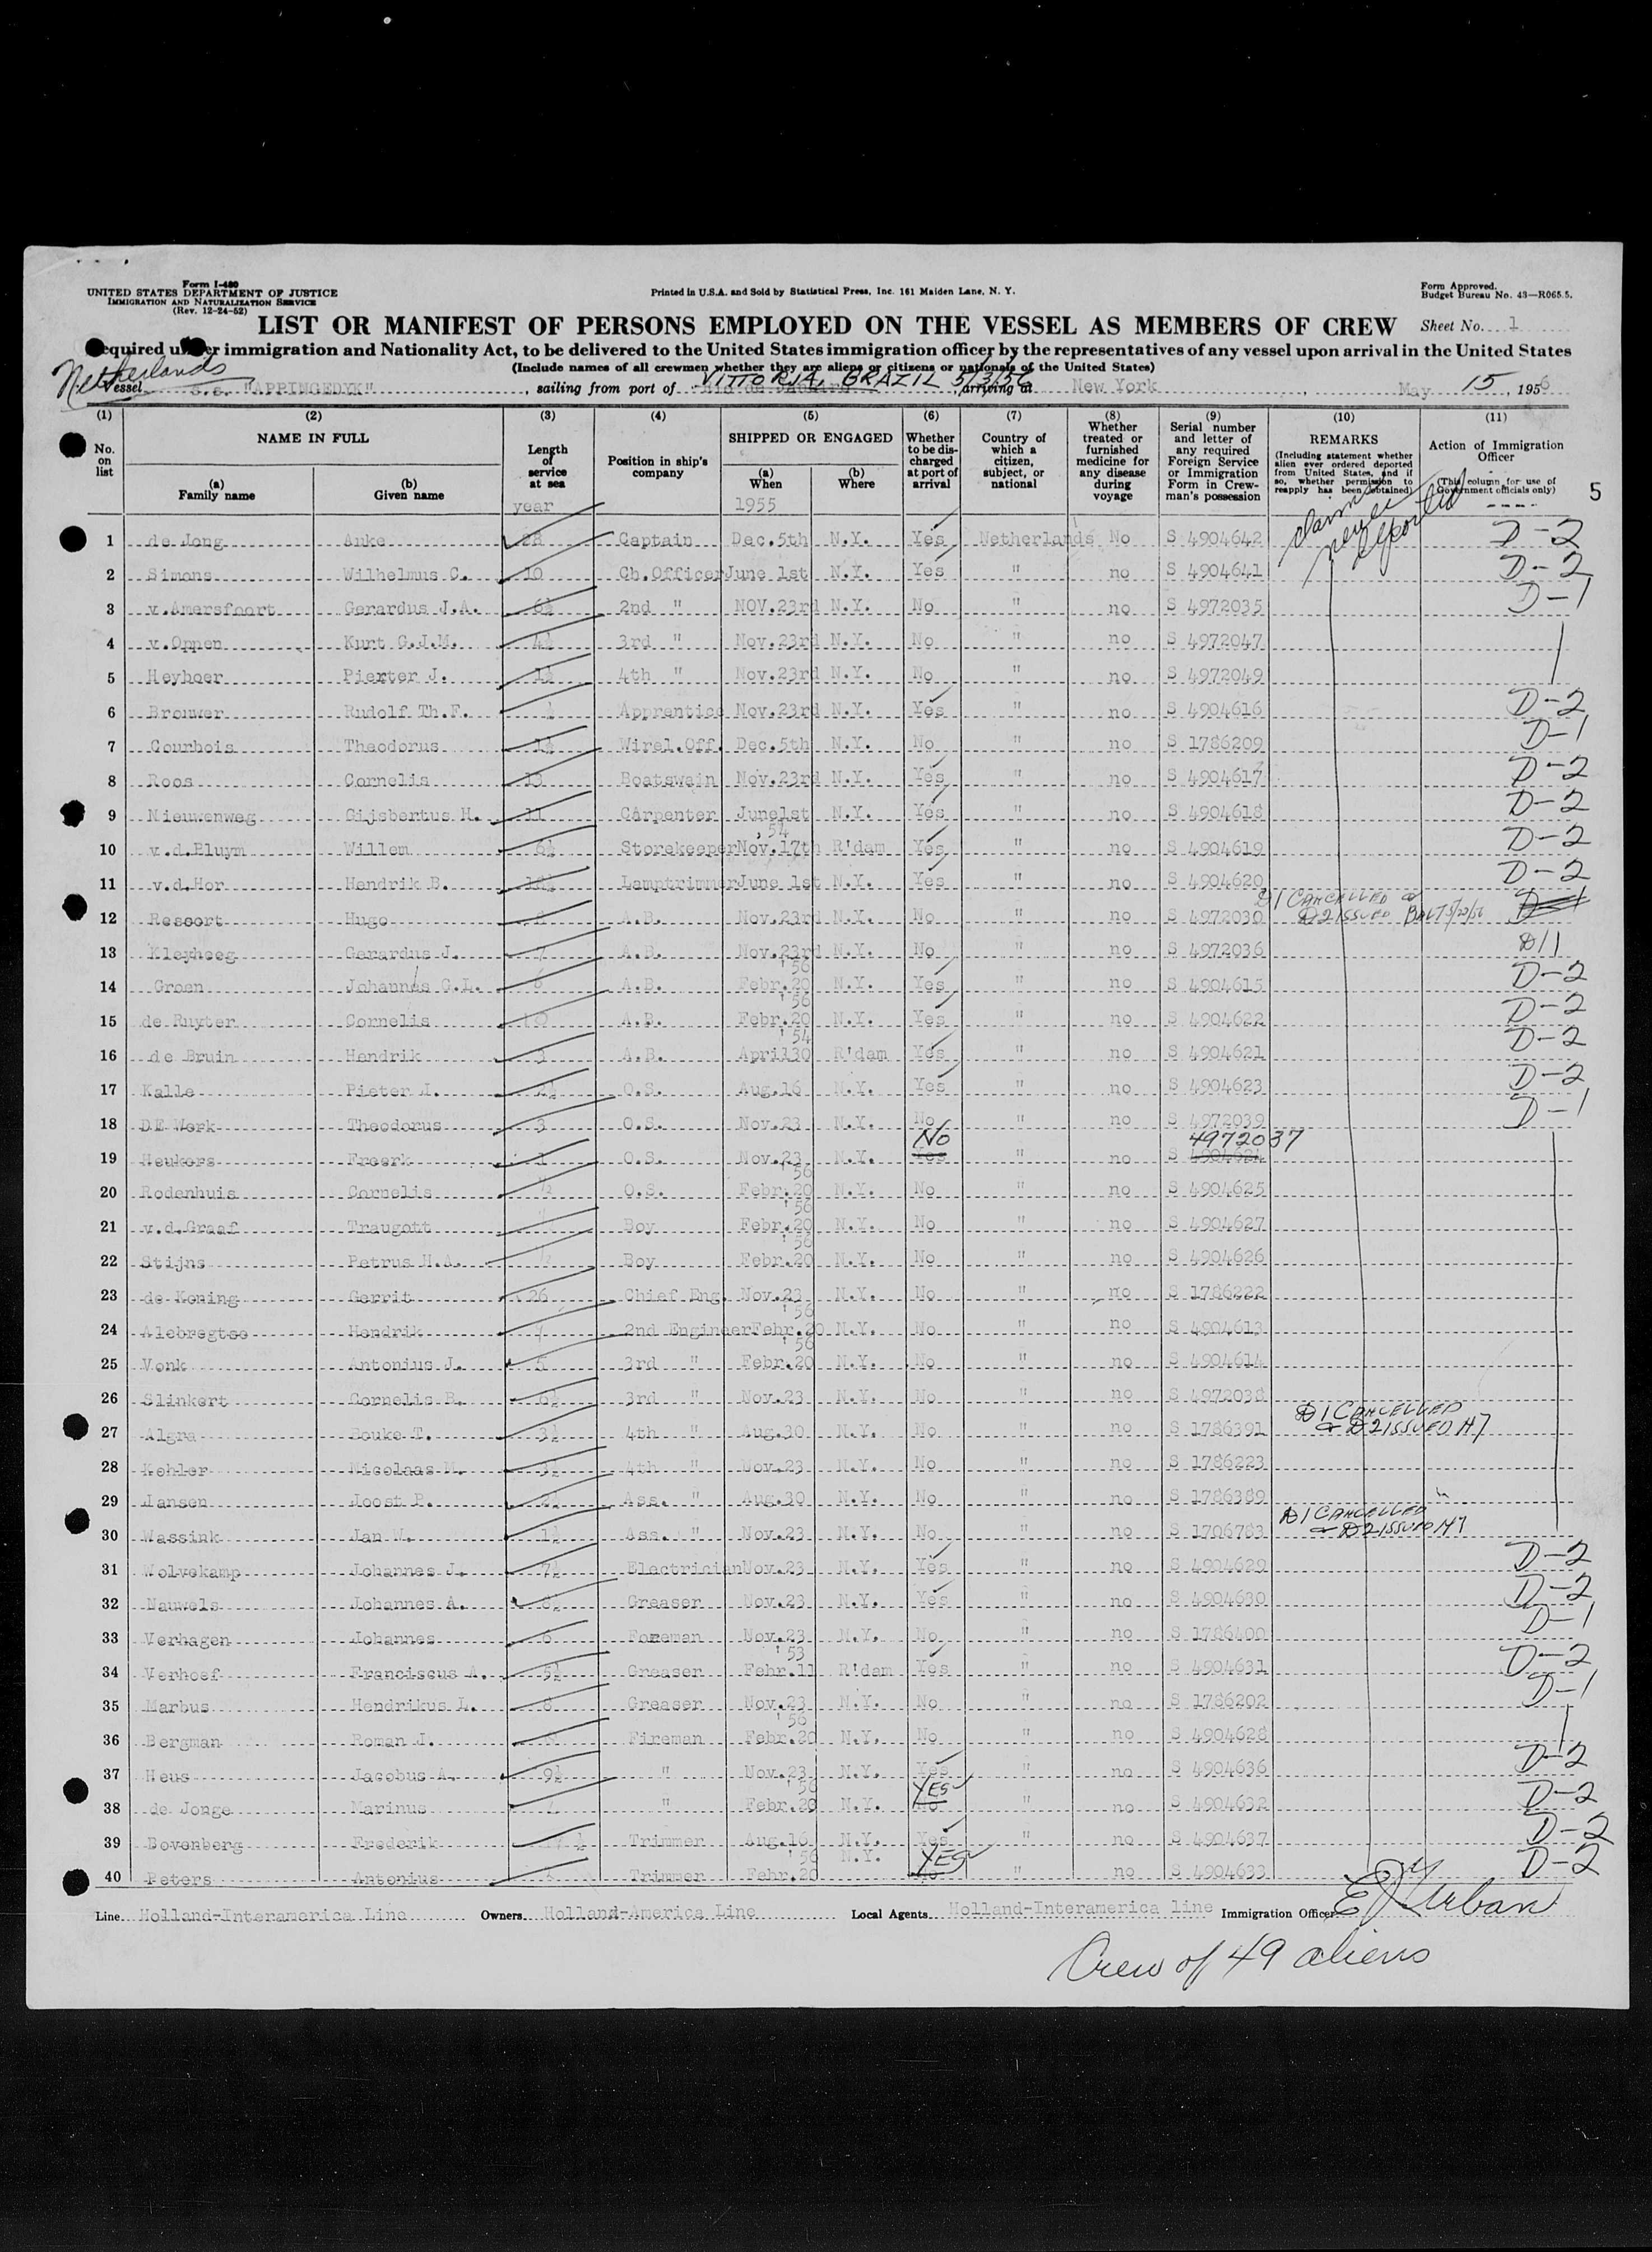 Form I-480
UNITED STATES DEPARTMENT OF JUSTICE
IMMIGRATION AND NATURALIZATION SERVICE
(Rev. 12-24-52)
Printed in U.S.A. and Sold by Statistical Press, Inc. 161 Maiden Lane, N. Y.
Form Approved.
Budget Bureau No. 43—R065.5.
LIST OR MANIFEST OF PERSONS EMPLOYED ON THE VESSEL AS MEMBERS OF CREW Sheet No. 1
equired under immigration and Nationality Act, to be delivered to the United States immigration officer by the representatives of any vessel upon arrival in the United States
(Include names of all crewmen whether they are aliens or citizens or nationals of the United States)
Netherlands
Vessel s.s. "APPINGEDYK", sailing from port of VITTORIA, BRAZIL 5/3/56, arriving at New York, May 15, 1956
(1) (2) (3) (4) (5) (6) (7) (8) (9) (10) (11)
No. on list NAME IN FULL Length of service at sea Position in ship's company SHIPPED OR ENGAGED Whether to be discharged at port of arrival Country of which a citizen, subject, or national Whether treated or furnished medicine for any disease during voyage Serial number and letter of any required Foreign Service or Immigration Form in Crewman's possession REMARKS (Including statement whether alien ever ordered deported from United States, and if so, whether permission to reapply has been obtained) Action of Immigration Officer (This column for use of Government officials only)
(a) Family name (b) Given name (a) When (b) Where
year 1955 5
claims never deported
1 de Jong Anke 28 Captain Dec.5th N.Y. Yes Netherlands No S 4904642 D-2
2 Simons Wilhelmus C. 10 Ch.Officer June 1st N.Y. Yes " no S 4904641 D-2
3 v.Amersfoort Gerardus J.A. 6½ 2nd " NOV.23rd N.Y. No " no S 4972035 D-1
4 v.Oppen Kurt G.J.M. 4½ 3rd " Nov.23rd N.Y. No " no S 4972047
5 Heyboer Pierter J. 1½ 4th " Nov.23rd N.Y. No " no S 4972049
6 Brouwer Rudolf Th.F. ½ Apprentice Nov.23rd N.Y. Yes " no S 4904616 D-2
7 Courbois Theodorus 1½ Wirel.Off. Dec.5th N.Y. No " no S 1786209 D-1
8 Roos Cornelis 13 Boatswain Nov.23rd N.Y. Yes " no S 4904617 D-2
9 Nieuwenweg Gijsbertus H. 11 Carpenter June1st N.Y. Yes " no S 4904618 D-2
10 v.d.Pluym Willem 6½ Storekeeper Nov.17th '54 R'dam Yes " no S 4904619 D-2
11 v.d.Hor Hendrik B. Lamptrimmer June 1st N.Y. Yes " no S 4904620 D-2
12 Ressort Hugo A.B. Nov.23rd N.Y. No " no S 4972030 D1 CANCELLED & D2 ISSUED BALT 5/20/56 D-1
13 Kleyhoeg Gerardus J. 7 A.B. Nov.23rd N.Y. No " no S 4972036 D/1
14 Groen Johannes C.L. 6 A.B. Febr.20 '56 N.Y. Yes " no S 4904615 D-2
15 de Ruyter Cornelis 10 A.B. Febr.20 '56 N.Y. Yes " no S 4904622 D-2
16 de Bruin Hendrik 3 A.B. April30 '54 R'dam Yes " no S 4904621 D-2
17 Kalle Pieter J. 2½ O.S. Aug.16 N.Y. Yes " no S 4904623 D-2
18 DE Werk Theodorus 3 O.S. Nov.23 N.Y. No " no S 4972039 D-1
19 Heukers Freerk 1 O.S. Nov.23 N.Y. Yes No " no S 4904624 4972037
20 Rodenhuis Cornelis ½ O.S. Febr.20 '56 N.Y. No " no S 4904625
21 v.d.Graaf Traugott Boy Febr.20 '56 N.Y. No " no S 4904627
22 Stijns Petrus H.A. ½ Boy Febr.20 '56 N.Y. No " no S 4904626
23 de Koning Gerrit 26 Chief Eng. Nov.23 N.Y. No " no S 1786222
24 Alebregtse Hendrik 2nd Engineer Febr.20 '56 N.Y. No " no S 4904613
25 Vonk Antonius J. 5 3rd " Febr.20 '56 N.Y. No " no S 4904614
26 Slinkert Cornelis B. 6½ 3rd " Nov.23 N.Y. No " no S 4972038
27 Algra Bouke T. 3½ 4th " Aug.30 N.Y. No " no S 1786391 D1 CANCELLED & D2 ISSUED
28 Kohler Nicolaas M. 4th " Nov.23 N.Y. No " no S 1786223
29 Jansen Joost P. 2½ Ass. " Aug.30 N.Y. No " no S 1786389
30 Wassink Jan W. 1½ Ass. " Nov.23 N.Y. No " no S 1706783 D1 CANCELLED & D2 ISSUED
31 Wolvekamp Johannes J. 7½ Electrician Nov.23 N.Y. Yes " no S 4904629 D-2
32 Nauwels Johannes A. Greaser Nov.23 N.Y. Yes " no S 4904630 D-2
33 Verhagen Johannes 6 Foreman Nov.23 N.Y. No " no S 1786400 D-1
34 Verhoef Franciscus A. 5½ Greaser Febr.11 '53 R'dam Yes " no S 4904631 D-2
35 Marbus Hendrikus L. 8 Greaser Nov.23 N.Y. No " no S 1786202 D-1
36 Bergman Roman J. Fireman Febr.20 '56 N.Y. No " no S 4904628
37 Heus Jacobus A. 9½ " Nov.23 N.Y. Yes " no S 4904636 D-2
38 de Jonge Marinus " Febr.20 '56 N.Y. No YES " no S 4904632 D-2
39 Bovenberg Frederik Trimmer Aug.16 N.Y. Yes " no S 4904637 D-2
40 Peters Antonius Trimmer Febr.20 '56 N.Y. No YES " no S 4904633 D-2
Line Holland-Interamerica Line Owners Holland-America Line Local Agents Holland-Interamerica line Immigration Officer E J Urban
Crew of 49 aliens